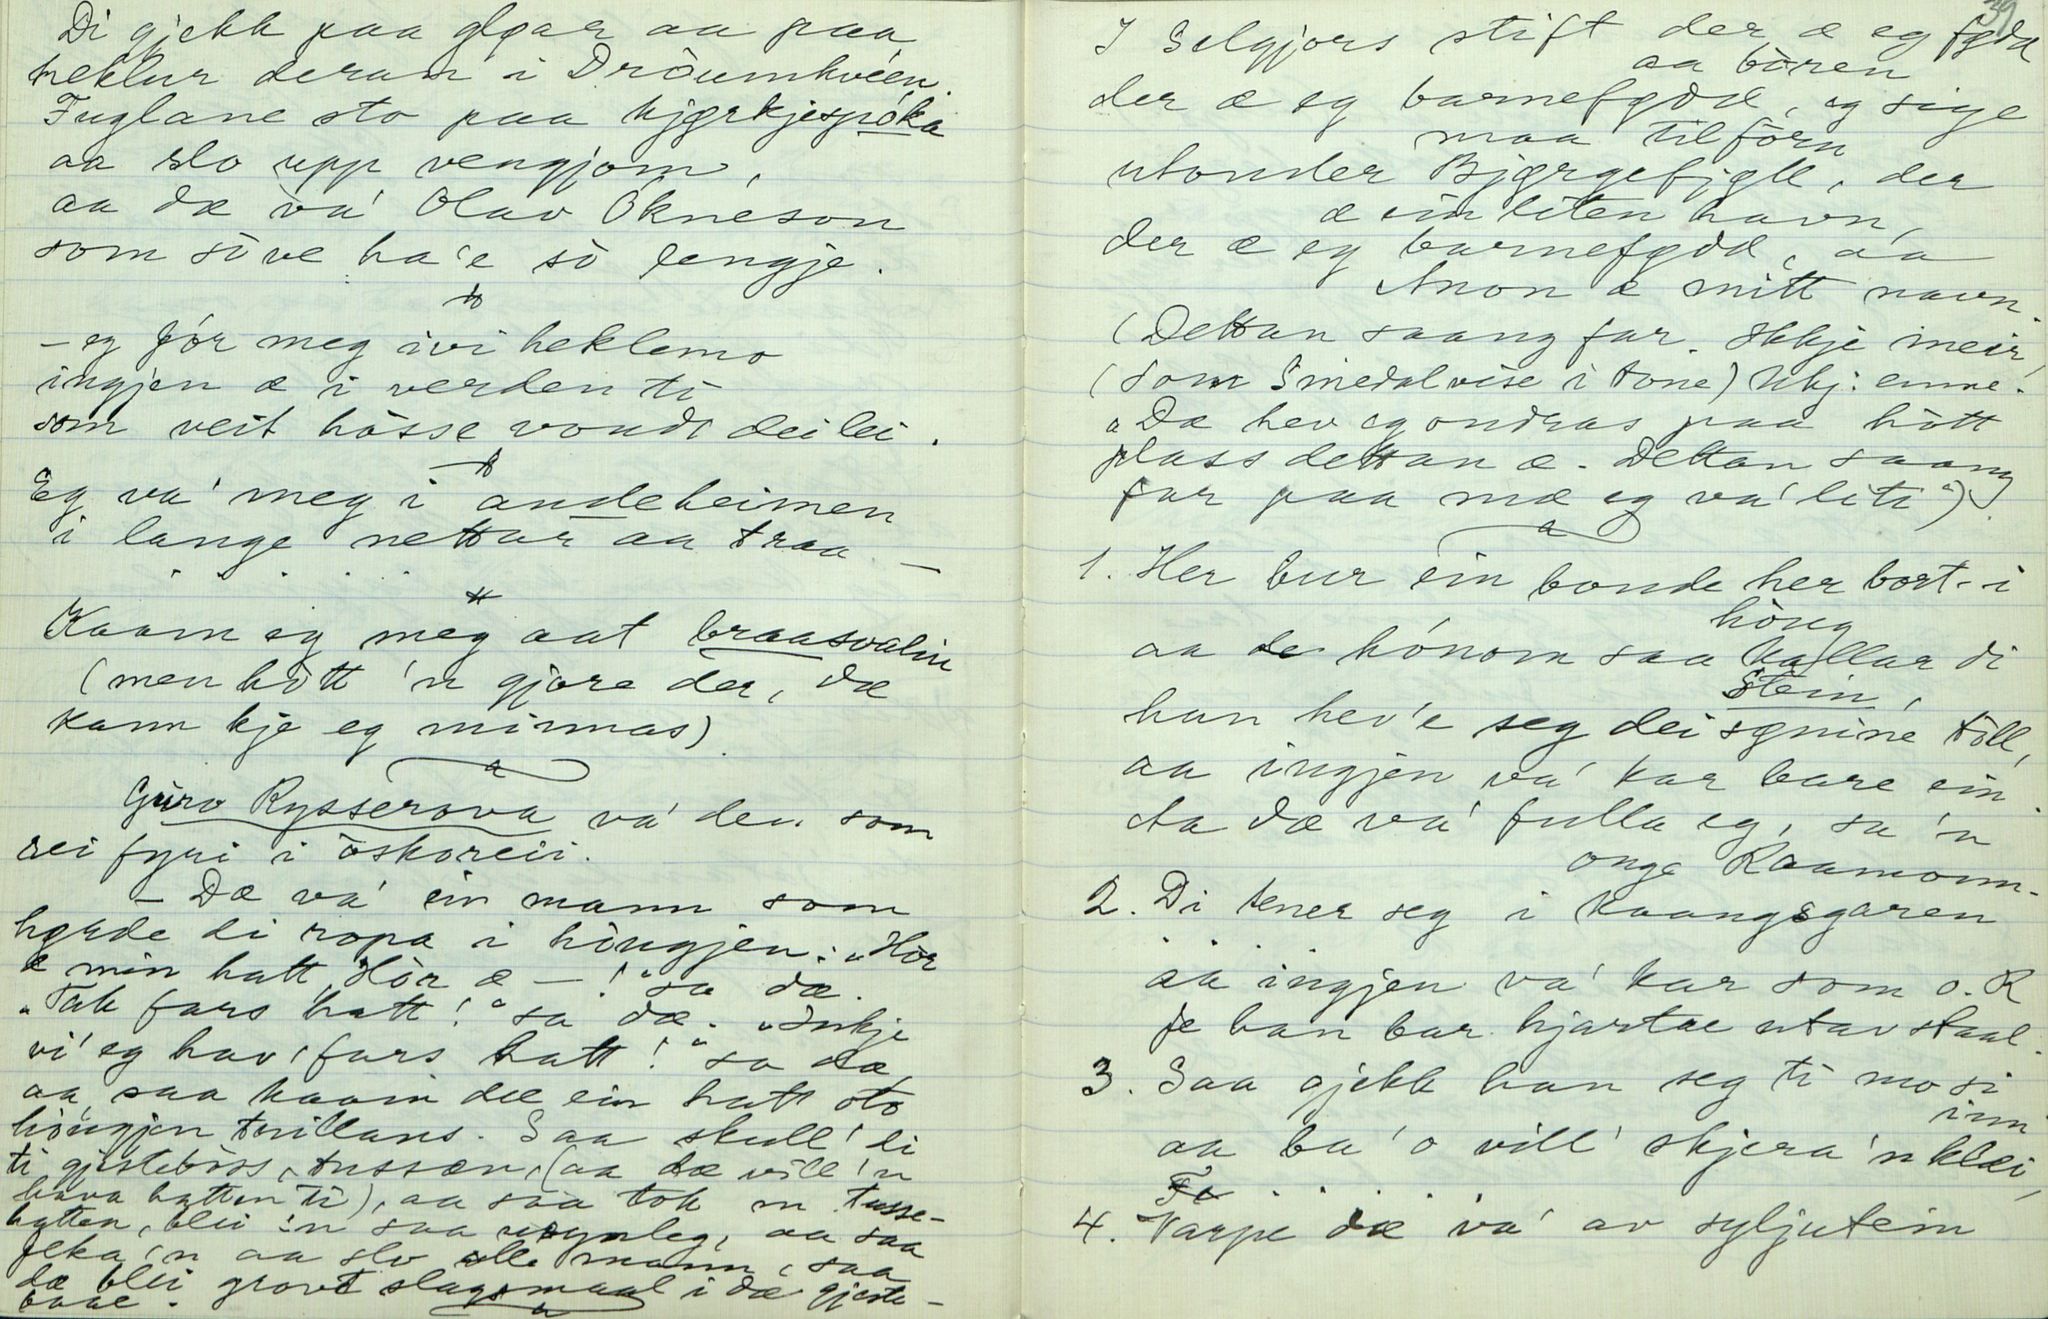 Di gjekk paa glgar aa paa
neklur deran i Dròumkvéen.
Fuglane sto paa kjørkjespóka
aa slo upp vengjom,
aa dæ va' Olav Òkneson
som sòve ha'e sò lengje.
– eg fór meg ivi heklemo
ingjen æ i verden ti
som veit hòsse vondt dei lei.
Eg va' meg i andeheimen
i lange nettar aa traa –
. . . . .
Kaam eg meg aat braasvalin
(men hòtt 'n gjòre der, dæ
kann kje eg minnas)
Guro Rysserova va' den som
rei fyri i òskoreii.
– Dæ va' ein mann som
høyrde di ropa i hòugjen: "Hòr
æ min hatt, Hòr æ – !" sa dæ.
"Tak fars hatt!" sa dæ. "Inkje
vi' eg hav' fars hatt!" sa dæ,
aa saa kaam dæ ein hatt òto
hòugjen trillans. Saa skull' di
ti gjestebòs, tussan, (aa dæ vill 'n
hava hatten ti), aa saa tok 'n tusse-
hatten, blei 'n saa usynleg, aa saa
fleka 'n aa slo alle mann, saa
dæ blei grovt slagsmaal i dæ gjeste-
boae.
39
I Selgjors stift der æ eg fødd
aa bòren
der æ eg barnefødd, eg sige
maa tilfòrn
utonder Bjørgefjøll, der
æ ein liten havn,
der æ eg barnefødd, aa
Anon æ mitt navn.
(Dettan saang far. Ikkje meir,
(som Sinedalvise i tone) Ukj: emne.
"Dæ hev eg ondras paa hòtt
plass dettan æ. Dettan saang
far paa mæ eg va' liti")
1. Her bur ein bonde her bort i
hòug
aa de hónom saa kallar di
Stein,
han hev'e seg dei sønine tòll,
aa ingjen va' kar bare ein.
Aa dæ va' fulla eg, sa 'n
onge Raamonn.
2. Di tener seg i kaangsgaren
. . .
aa ingjen va' kar som o. R
fe han bar hjartae utav staal.
3. Saa gjekk han seg ti mo si
inn
aa ba' o vill' skjera 'n klæi,
. . . .
4. Varpe dæ va' av syljutein